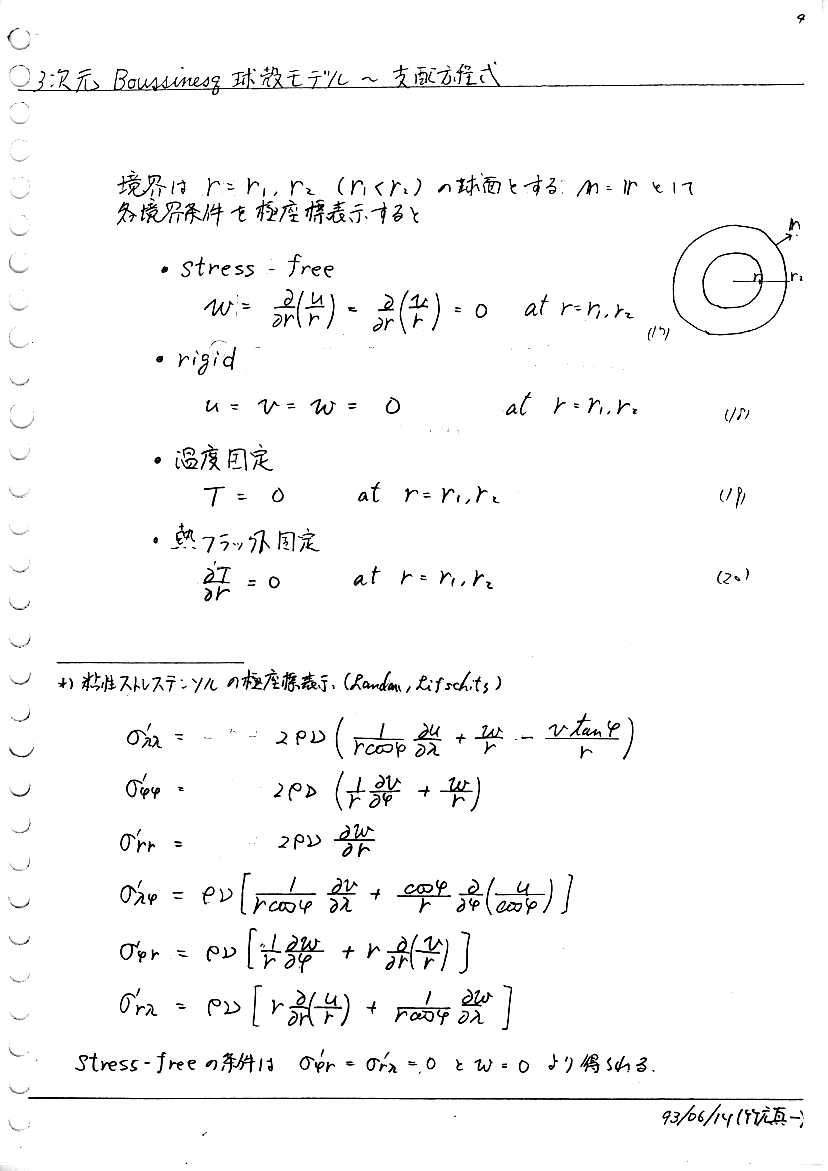 9
3次元 Boussinesq 球殻モデル ～ 支配方程式
境界は r = r₁, r₂ (r₁<r₂) の球面とする. 𝕟 = 𝕣 として
各境界条件を極座標表示すると
𝕟
r₁ r₂
• stress - free
w = ∂/∂r(u/r) = ∂/∂r(v/r) = 0 at r = r₁, r₂ (17)
• rigid
u = v = w = 0 at r = r₁, r₂ (18)
• 温度固定
T = 0 at r = r₁, r₂ (19)
• 熱フラックス固定
∂T/∂r = 0 at r = r₁, r₂ (20)
*) 粘性ストレステンソルの極座標表示. (Landau, Lifschits)
σ'λλ = 2ρν ( 1/(r cosφ) ∂u/∂λ + w/r - v tanφ/r )
σ'φφ = 2ρν ( 1/r ∂v/∂φ + w/r )
σ'rr = 2ρν ∂w/∂r
σ'λφ = ρν [ 1/(r cosφ) ∂v/∂λ + cosφ/r ∂/∂φ(u/cosφ) ]
σ'φr = ρν [ 1/r ∂w/∂φ + r ∂/∂r(v/r) ]
σ'rλ = ρν [ r ∂/∂r(u/r) + 1/(r cosφ) ∂w/∂λ ]
stress-free の条件は σ'φr = σ'rλ = 0 と w = 0 より得られる.
93/06/14 (竹広真一)